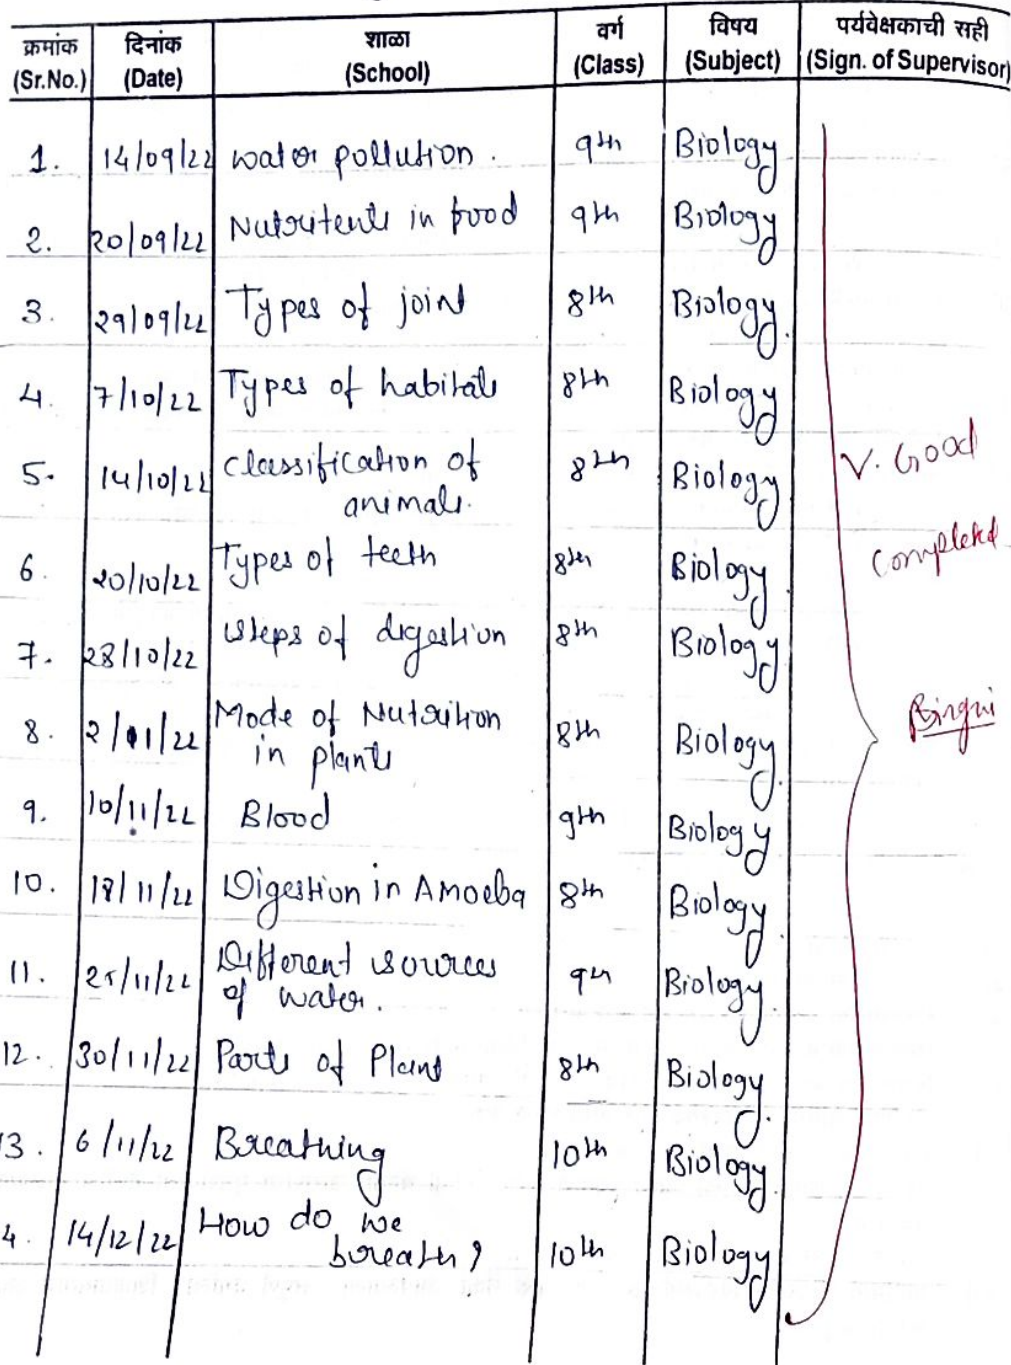 क्रमांक दिनांक शाळा वर्ग विषय पर्यवेक्षकाची सही
(Sr.No.) (Date) (School) (Class) (Subject) (Sign. of Supervisor)
1. 14/09/22 water pollution. 9th Biology
2. 20/09/22 Nutritents in food 9th Biology
3. 29/09/22 Types of joint 8th Biology.
4. 7/10/22 Types of habitats 8th Biology
5. 14/10/22 Classification of 8th Biology
animals.
V. Good
6. 20/10/22 Types of teeth 8th Biology
Completed
7. 28/10/22 Steps of digestion 8th Biology
8. 2/11/22 Mode of Nutrition 8th Biology
in plants
9. 10/11/22 Blood 9th Biology
10. 18/11/22 Digestion in Amoeba 8th Biology
11. 25/11/22 Different sources 9th Biology
of water.
12. 30/11/22 Parts of Plant 8th Biology
3. 6/11/22 Breathing 10th Biology
4. 14/12/22 How do we 10th Biology
breath?